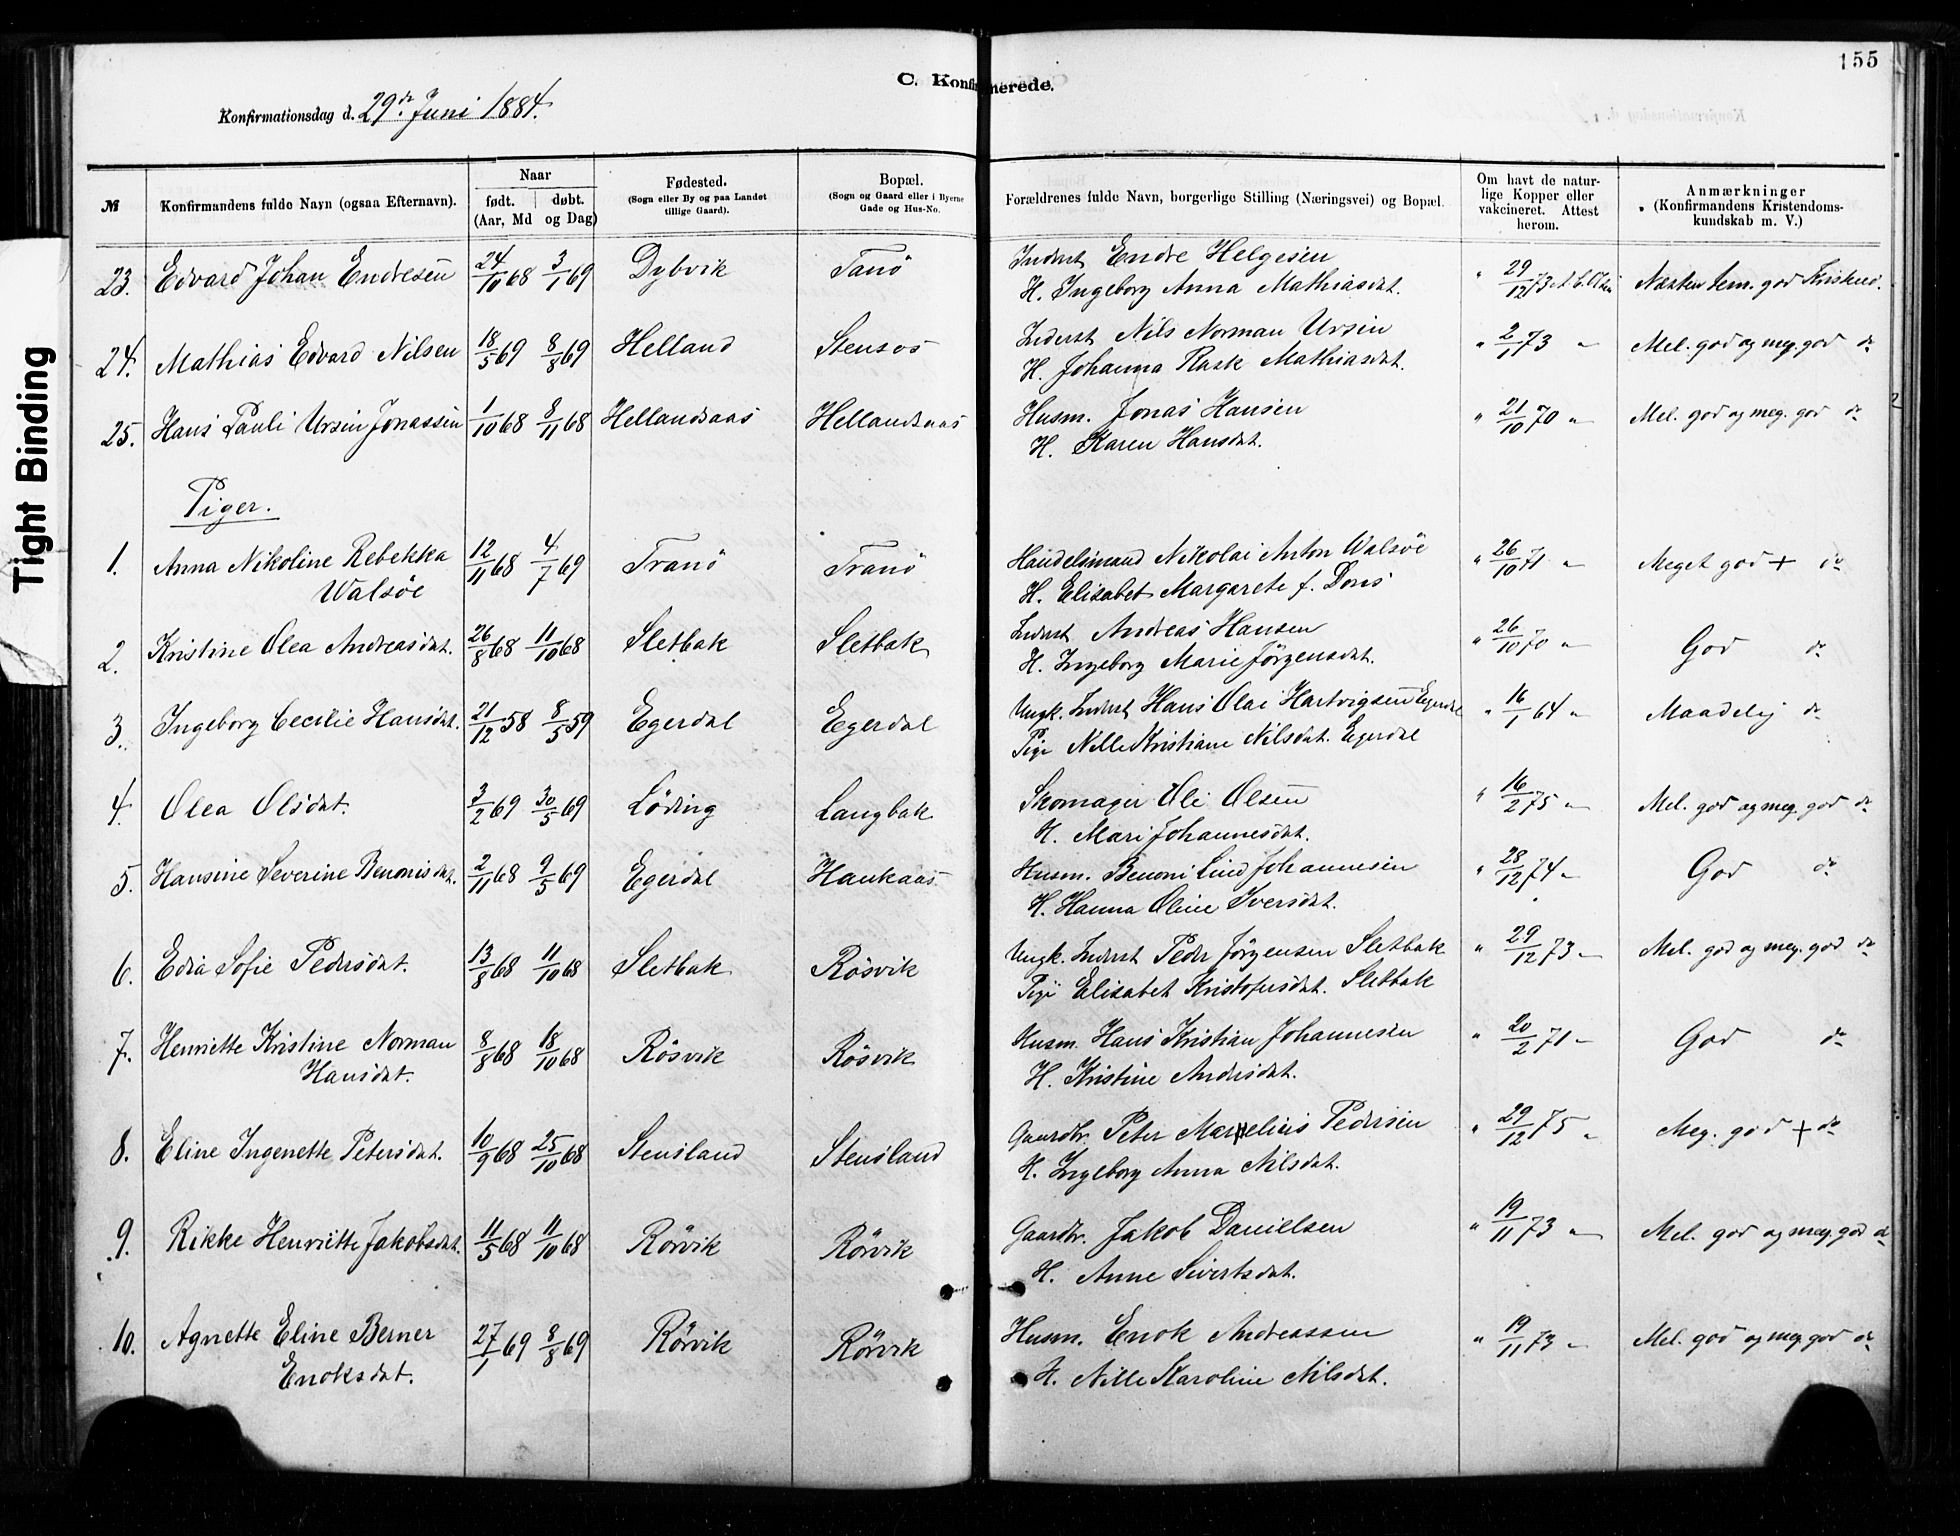 155
C. Konfirmerede.
Konfirmationsdag d. 29de Juni 1884.
Tight Binding
№ Konfirmandens fulde Navn (ogsaa Efternavn). Naar født. døbt. (Aar, Md og Dag) Fødested. (Sogn eller By og paa Landet tillige Gaard). Bopæl. (Sogn og Gaard eller i Byerne Gade og Hus-No. Forældrenes fulde Navn, borgerlige Stilling (Næringsvei) og Bopæl. Om havt de naturlige Kopper eller vakcineret. Attest herom. Anmærkninger (Konfirmandens Kristendomskundskab m. V.)
23. Edvard Johan Endresen 24/10 68 3/1 69 Dybvik Tanö Inderst Endre Helgesen " 29/12 73 Næsten tem. god Kristend.
H. Ingeborg Anna Mathiasdat.
24. Mathias Edvard Nilsen 18/5 69 8/8 69 Helland Stensos Inderst Nils Norman Ursin " 2/1 73 " Mel. god og meg. god do
H. Johanna Rask Mathiasdat.
25. Hans Pauli Ursin Jonassen 1/10 68 8/11 68 Hellandsaas Hellandsaas Husm. Jonas Hansen " 21/10 70 " Mel. god og meg. god do
H. Karen Hansdat.
Piger.
1. Anna Nikoline Rebekka 12/11 68 4/7 69 Tranö Tranö Handelsmand Nikolai Anton Walsöe " 26/10 71 " Meget god + do
Walsöe H. Elisabet Margarete f. Dons
2. Kristine Olea Andreasdat. 26/8 68 11/10 68 Sletbak Sletbak Inderst Andreas Hansen " 26/10 70 " God do
H. Ingeborg Marie Jörgensdat.
3. Ingeborg Cecilie Hansdat. 21/12 58 8/5 59 Egerdal Egerdal Ungk. Inderst Hans Olai Hartvigsen Egerdal " 16/1 64 " Maadelig do
Pige Nille Kristiane Nilsdat. Egerdal
4. Olea Olsdat. 3/2 69 30/5 69 Löding Langbak Skomager Ole Olsen " 16/2 75 " Mel. god og meg. god do
H. Mari Johannesdat.
5. Hansine Severine Benonisdat. 2/11 68 9/5 69 Egerdal Haukaas Husm. Benoni Lind Johannesen " 28/12 74 " God do
H. Hanna Oline Iversdat.
6. Edia Sofie Pedersdat. 13/8 68 11/10 68 Sletbak Rösvik Ungk. Inderst Peder Jörgensen Sletbak " 29/12 73 " Mel. god og meg. god do
Pige Elisabet Kristofersdat. Sletbak
7. Henriette Kristine Norman 8/8 68 18/10 68 Rösvik Rösvik Husm. Hans Kristian Johannesen " 20/2 71 " God do
Hansdat. H. Kristine Andersdat.
8. Eline Ingenette Petersdat. 10/9 68 25/10 68 Stensland Stensland Gaardbr. Peter Marselius Pedersen " 29/12 75 " Meg. god + do
H. Ingeborg Anna Nilsdat.
9. Rikke Henriette Jakobsdat. 11/5 68 11/10 68 Rörvik Rörvik Gaardbr. Jakob Danielsen " 19/11 73 " Mel. god og meg. god do
H. Anne Sivertsdat.
10. Agnette Eline Berner 27/1 69 8/8 69 Rörvik Rörvik Husm. Enok Andreassen " 19/11 73 " Mel. god og meg. god do
Enoksdat. H. Nille Karoline Nilsdat.